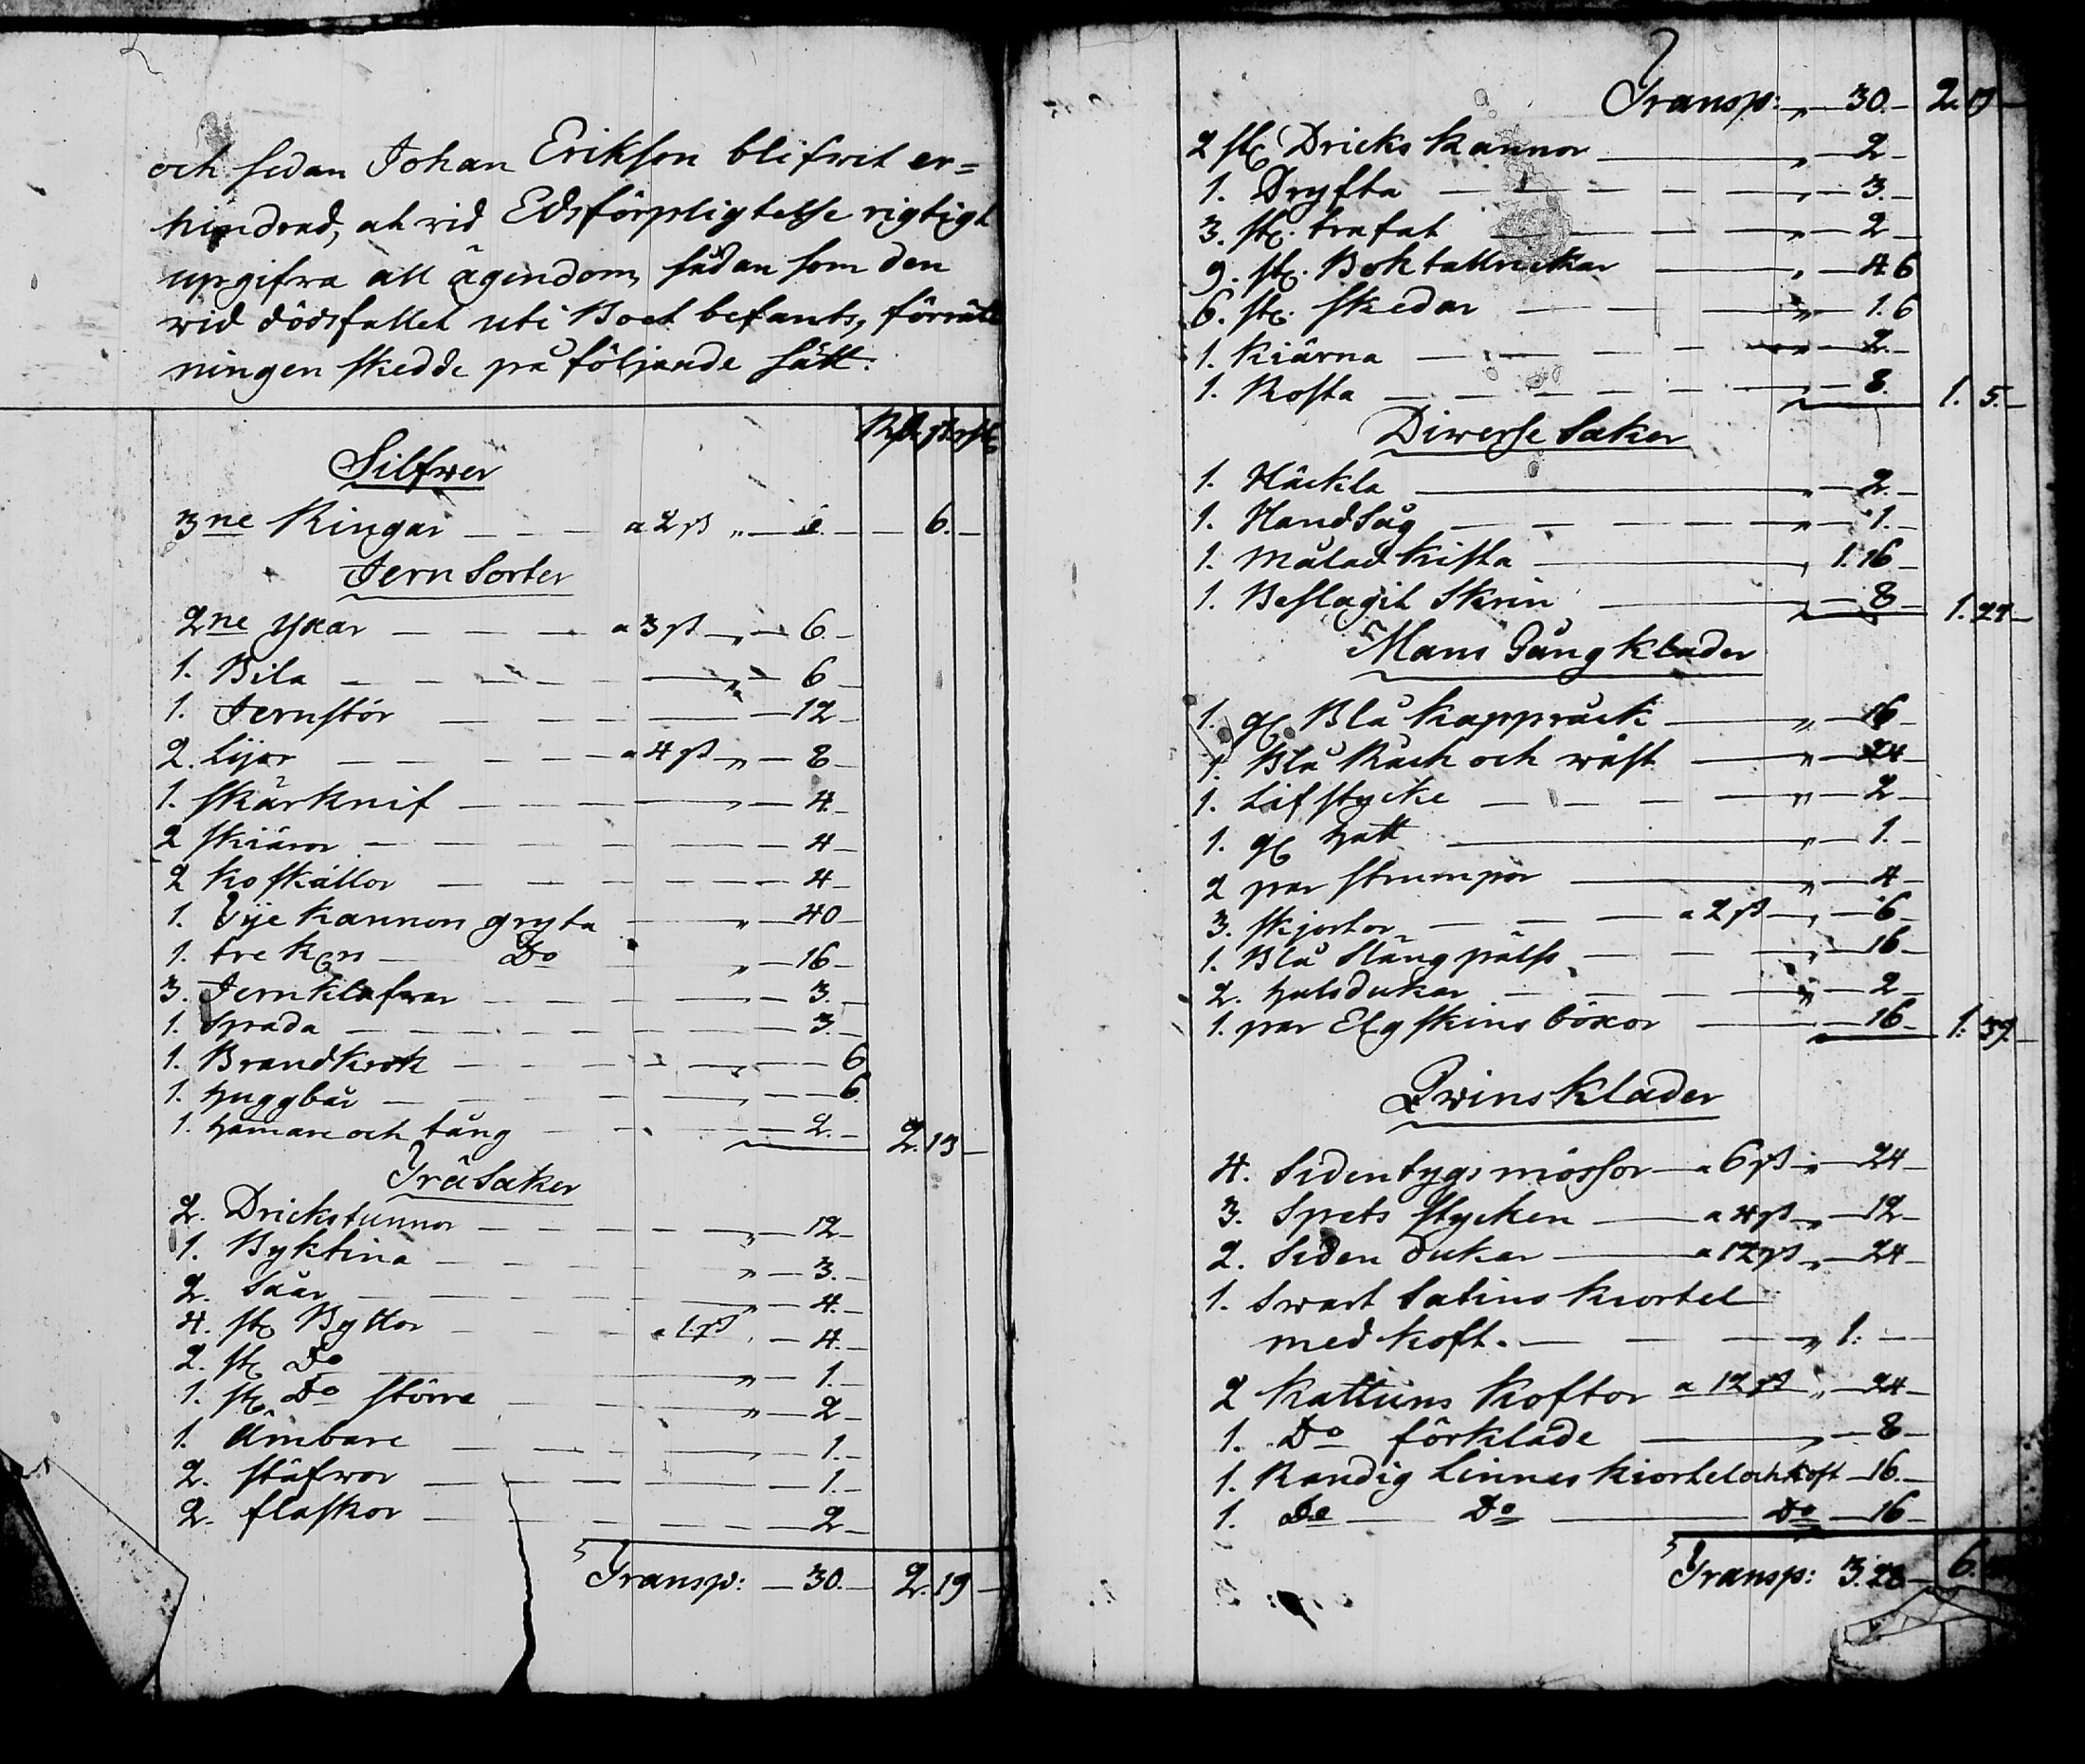 och sedan Johan Erikson blifwit er=
hindrad, at wid Edsförpligtelse rigtigt
upgifwa all ägendom, sådan som den
wid dödsfallet uti Boet befants, förrätt
ningen skedde på följande sätt:
Rd. ß. rst
Silfwer
3ne Ringar — — — a 2 ß „ — — 6. —
Jern Sorter
2ne Yxar — — — a 3 ß „ — 6 —
1. Bila — — — „ — 6 —
1. Jernstör — — — 12 —
2. Lijar — — — a 4 ß „ — 8 —
1. Skärknif — — — „ — 4. —
2 Skiäror — — — 4 —
2 Koskällor — — — 4 —
1. Tije kannors gryta — „ — 40 —
1. tre krs — Do „ — 16 —
3. Jernklafwar — — — 3. —
1. Spada — — — 3. —
1. Brandkrok — — — 6
1. Huggbår — — — 6.
1. Hamare och tång — — — 2. — 2. 13 —
Träsaker
2. Drickstunnor — — — „ — 12 —
1. Byktina — — — „ — 3. —
2. Såar — — — „ — 4. —
4. st Byttor — — a 1 ß „ — 4. —
2. st Do — — „ — 1. —
1. st Do större — — „ — 2 —
1. Ämbare — — — 1. —
2. stäfwor — — — 1. —
2. flaskor — — — 2 —
Transp: — 30. — 2. 19 —
Transp: „ — 30. — 2. 19 —
2 st Dricks kannor — „ — 2 —
1. Dryfta — — — „ — 3. —
3. st. trafat — — „ — 2 —
9. st. Bok tallrickar — „ — 4. 6
6. st. Skedar — — „ — 1. 6
1. Kiärna — — — „ — 2. —
1. Kosta — — — „ — 8. 1. 5. —
Diwerse Saker
1. Häckla — „ — 2. —
1. Handsåg — — — „ — 1. —
1. Målad Kista — „ 1. 16 —
1. Beslagit Skrin — „ — 8 — 1. 27 —
Mans Gångkläder
1. gl Blå Kappråck — „ — 16 —
1. Blå Råck och wäst — „ — 24 —
1. Lifstycke — — „ — 2 —
1. gl Hatt — „ — 1. —
2 par Strumpor — „ — 4 —
3. Skjortor — — a 2 ß „ — 6 —
1. Blå Slängpälss — — „ — 16 —
2. Halsdukar — — — „ — 2 —
1. par Elgskins böxor — — 16 — 1: 39. —
Qwinskläder
4. Sidentygs mössor — a 6 ß „ — 24 —
3. Spets stycken — a 4 ß „ — 12 —
2. Siden dukar — a 12 ß „ — 24 —
1. Swart Satins Kiortel
med Koft. — — — „ 1: —
2 Kattuns Koftor a 12 ß „ — 24 —
1. Do förkläde — „ — 8 —
1. Randig Linnes Kiortel och Koft — 16. —
1. Do — Do — Do — 16 —
Transp: 3. 28 — 6.